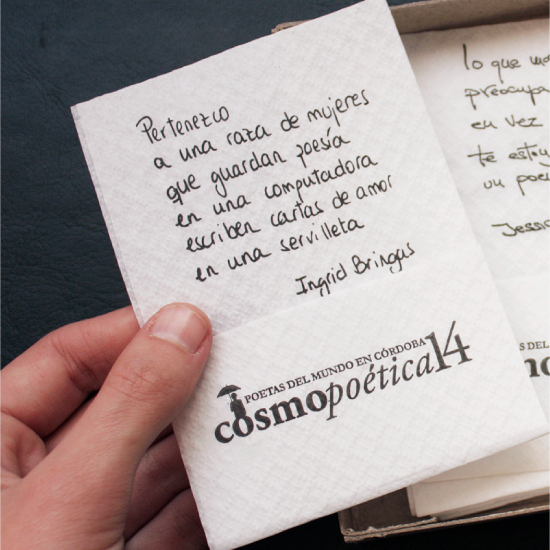 Pertenezco
a una raza de mujeres
que guardan poesía
en una computadora
escriben cartas de amor
en una servilleta
Ingrid Bringas
POETAS DEL MUNDO EN CÓRDOBA
cosmopoética14
lo que
preocupa
en vez
te estoy
un